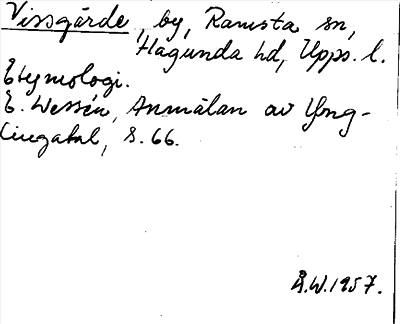 Vissgärde, by, Ramsta sn,
Hagunda hd, Upps. l.
Etymologi.
E. Wessén, Anmälan av Yng-
lingatal, s. 66.
Å.W. 1957.